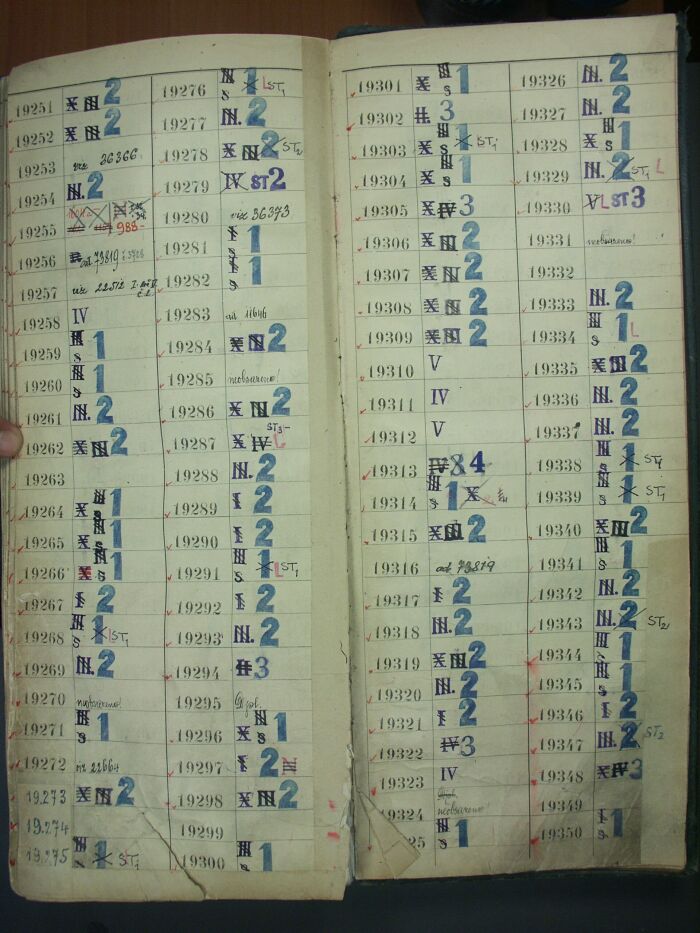 19251 X III 2
19252 X III 2
19253 viz 36366
19254 III. 2
19255 988-
19256 ad 73819
19257 viz
19258 IV
19259 III s 1
19260 III s 1
19261 III. 2
19262 X III 2
19263
19264 X III s 1
19265 X III s 1
19266 X III s 1
19267 I 2
19268 III s 1 X ST1
19269 III. 2
19270 neobsazeno!
19271 III s 1
19272 viz 22664
19.273 X III 2
19.274
19.275 III s 1 X ST1
19276 III s 1 X L ST1
19277 III. 2
19278 X III 2 X ST2
19279 IV ST 2
19280 viz 36373
19281 I s 1
19282 I s 1
19283 ad 11646
19284 X III 2
19285 neobsazeno!
19286 X III 2
19287 X IV ST3- L
19288 III. 2
19289 I 2
19290 I 2
19291 III s 1 X L ST1
19292 I 2
19293 III. 2
19294 II. 3
19295
19296 X III s 1
19297 I 2 IV
19298 X III 2
19299
19300 III s 1
19301 X III s 1
19302 II. 3
19303 X III s 1 X ST1
19304 X III s 1
19305 X IV 3
19306 X III 2
19307 X III 2
19308 X III 2
19309 X III 2
19310 V
19311 IV
19312 V
19313 IV 3 4
19314 III s 1 X
19315 X III 2
19316 ad 73819
19317 I 2
19318 III. 2
19319 X III 2
19320 III. 2
19321 I 2
19322 IV 3
19323 IV
19324 neobsazeno
25 III s 1
19326 III. 2
19327 III. 2
19328 X III s 1
19329 III. 2 X ST1 L
19330 V L ST 3
19331 neobsazeno!
19332
19333 III. 2
19334 III s 1 L
19335 X III 2
19336 III. 2
19337 III. 2
19338 III s 1 X ST1
19339 III s 1 X ST1
19340 X III 2
19341 III s 1
19342 III. 2
19343 III. 2 ST2
19344 III s 1
19345 III s 1
19346 I 2
19347 III. 2 ST2
19348 X IV 3
19349
19350 I s 1